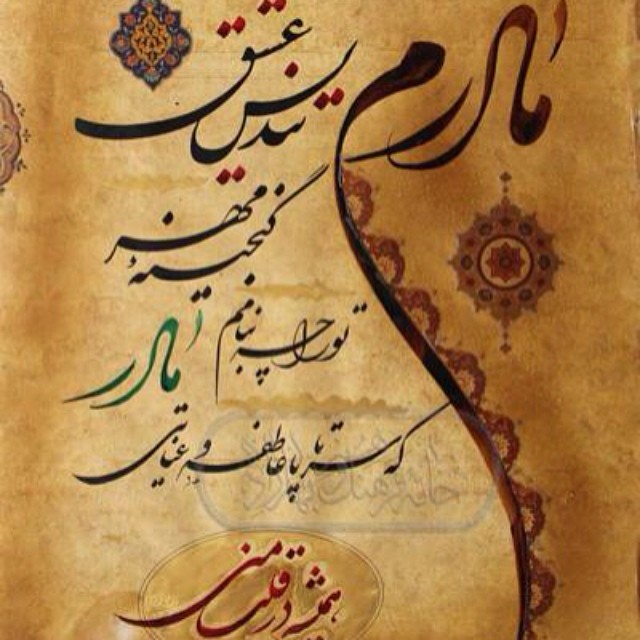 مادرم
تندیس عشق
گنجینه مهر
تو را چه بنامم
مادر
که سرتا پا عاطفه و عنایتی
همیشه در قلب من